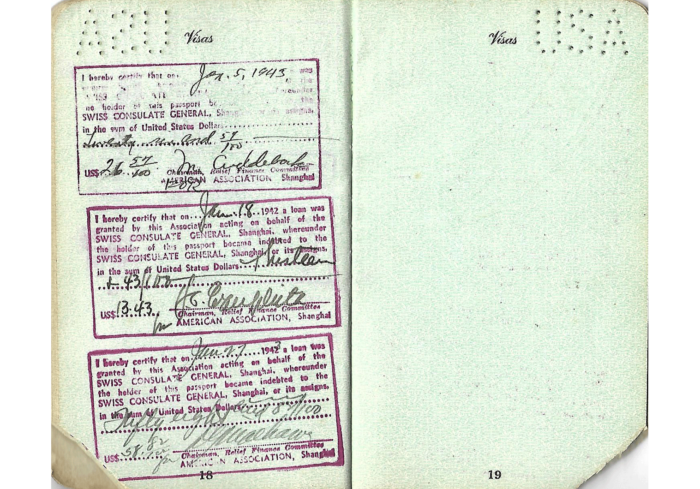 Visas
I hereby certify that on Jan. 5, 1943 was
the holder of this passport be the
SWISS CONSULATE GENERAL, Shang assigns,
in the sum of United States Dollars
57/100
US$ 26 57/100
Chairman, Relief Finance Committee
AMERICAN ASSOCIATION, Shanghai
I hereby certify that on Jan. 18. 1942 a loan was
granted by this Association acting on behalf of the
SWISS CONSULATE GENERAL, Shanghai, whereunder
the holder of this passport became indebted to the
SWISS CONSULATE GENERAL, Shanghai, or its assigns,
in the sum of United States Dollars Thirteen
+ 43/100
US$ 13.43
for Chairman, Relief Finance Committee
AMERICAN ASSOCIATION, Shanghai
I hereby certify that on Jan 27 1943 a loan was
granted by this Association acting on behalf of the
SWISS CONSULATE GENERAL, Shanghai, whereunder
the holder of this passport became indebted to the
SWISS CONSULATE GENERAL, Shanghai, or its assigns,
in the sum of United States Dollars
Fifty eight and 82/100
US$ 58.82
for Chairman, Relief Finance Committee
AMERICAN ASSOCIATION, Shanghai
18
Visas
USA
19